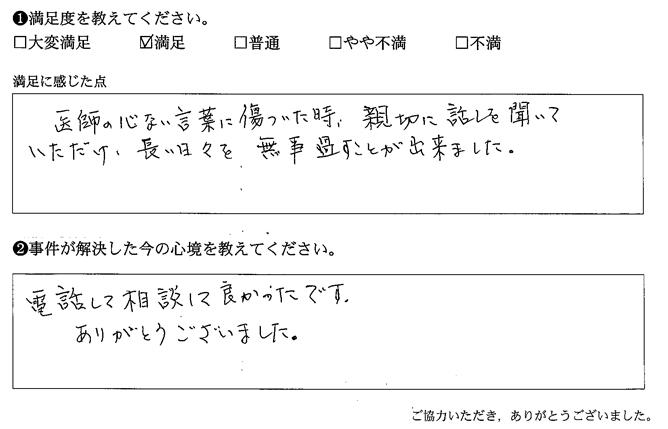 ❶満足度を教えてください。
□大変満足 ☑満足 □普通 □やや不満 □不満
満足に感じた点
医師の心ない言葉に傷ついた時、親切に話しを聞いて
いただけ、長い日々を無事過すことが出来ました。
❷事件が解決した今の心境を教えてください。
電話して相談して良かったです。
ありがとうございました。
ご協力いただき，ありがとうございました。